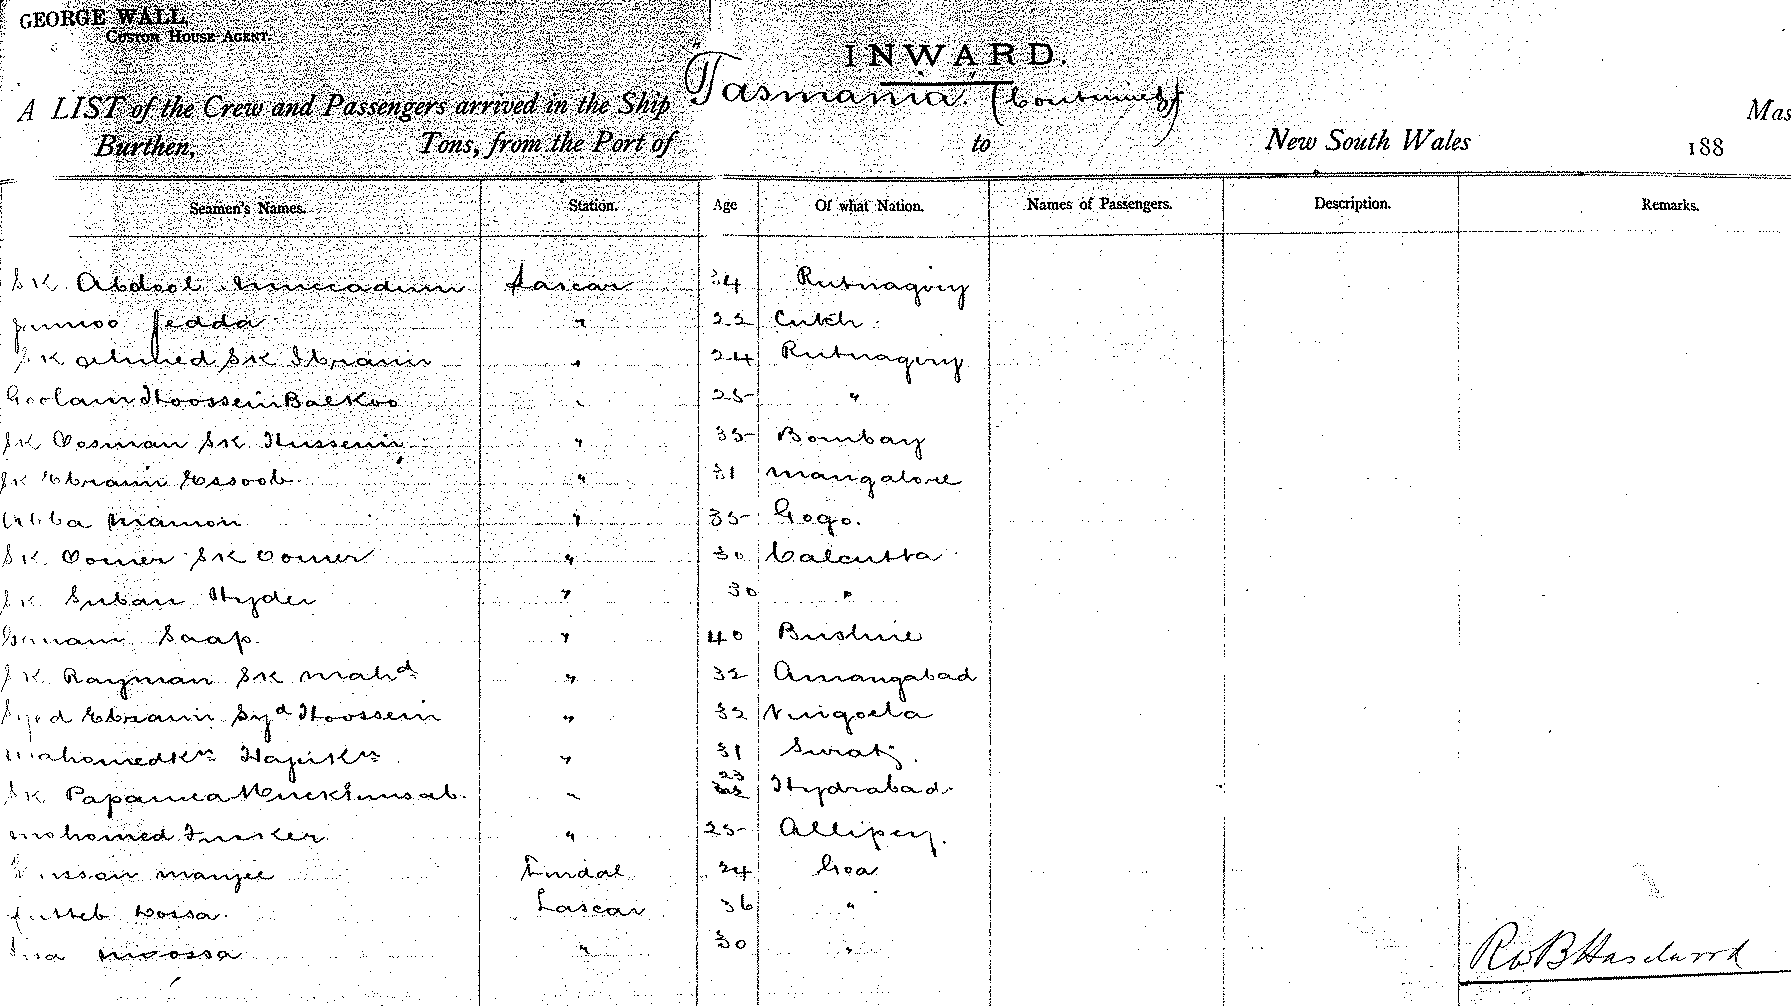 GEORGE WALL,
CUSTOM HOUSE AGENT.
INWARD.
A LIST of the Crew and Passengers arrived in the Ship "Tasmania. (Continued) Mas
Burthen, Tons, from the Port of to New South Wales 188
Seamen's Names. Station. Age Of what Nation. Names of Passengers. Description. Remarks.
SK Abdool Muccadum Lascar 34 Rutnagiry
Jumoo Jedda " 22 Cutch
SK Ahmed SK Ibraim " 24 Rutnagiry
Goolam Hoossein Balkoo " 25 "
SK Oosman SK Hussein " 35 Bombay
SK Ebraim Essoob " 31 Mangalore
Mamon " 35 Gogo.
SK Oomer SK Oomer " 30 Calcutta
SK Suban Hyder " 30 "
Saap " 40 Bushire
SK Rayman SK Mahd " 32 Aurangabad
Syed Ebraim Syd Hoossein " 32 Vingorla
Mahomed Kn Haji Kn " 31 Surat
SK Papamea " 23 Hydrabad
Mohomed " 25 Allipey.
Manjee Tindal 24 Goa
Dossa Lascar 36 "
Moossa " 30 "